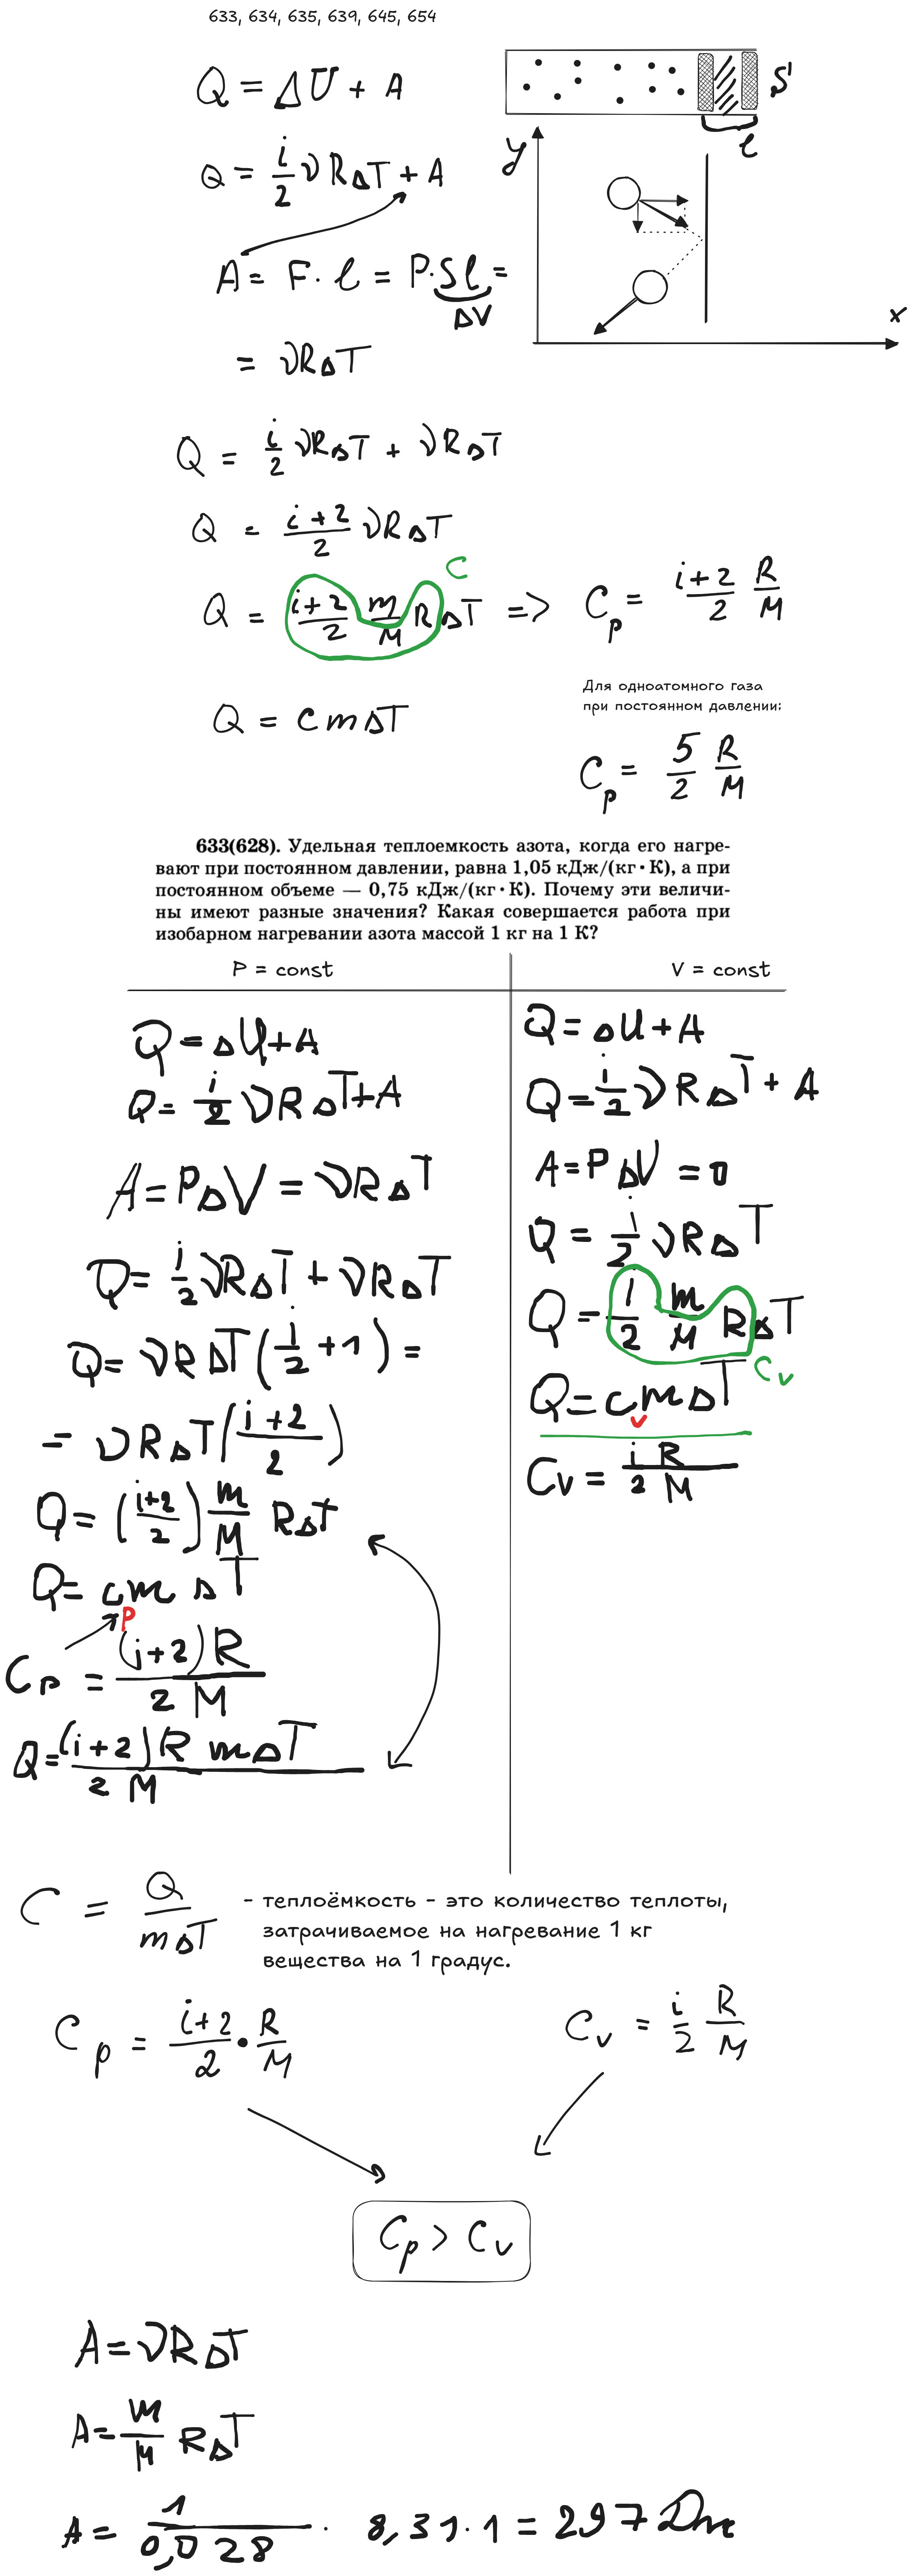 633, 634, 635, 639, 645, 654
Q = ΔU + A
Q = i/2 νRΔT + A
A = F · l = P · Sl =
ΔV
= νRΔT
S
l
y
x
Q = i/2 νRΔT + νRΔT
Q = (i+2)/2 νRΔT
Q = (i+2)/2 m/M RΔT => Cp = (i+2)/2 R/M
C
Q = cmΔT
Для одноатомного газа
при постоянном давлении:
Cp = 5/2 R/M
633(628). Удельная теплоемкость азота, когда его нагре-
вают при постоянном давлении, равна 1,05 кДж/(кг · К), а при
постоянном объеме — 0,75 кДж/(кг · К). Почему эти величи-
ны имеют разные значения? Какая совершается работа при
изобарном нагревании азота массой 1 кг на 1 К?
P = const
Q = ΔU + A
Q = i/2 νRΔT + A
A = PΔV = νRΔT
Q = i/2 νRΔT + νRΔT
Q = νRΔT (i/2 + 1) =
= νRΔT ((i+2)/2)
Q = ((i+2)/2) m/M RΔT
Q = cmΔT
P
Cp = (i+2)R / 2M
Q = (i+2)R mΔT / 2M
V = const
Q = ΔU + A
Q = i/2 νRΔT + A
A = PΔV = 0
Q = i/2 νRΔT
Q = i/2 m/M RΔT
Cv
Q = cmΔT
v
Cv = i/2 R/M
C = Q / mΔT
- теплоёмкость - это количество теплоты,
затрачиваемое на нагревание 1 кг
вещества на 1 градус.
Cp = (i+2)/2 · R/M
Cv = i/2 R/M
Cp > Cv
A = νRΔT
A = m/M RΔT
A = 1/0,028 · 8,31 · 1 = 297 Дж